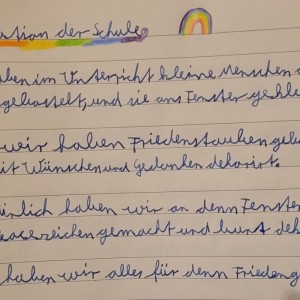 ation der Schule
aben im Unterricht kleine Menschen
gebastelt, und sie ans Fenster gekle
wir haben Friedenstauben geba
it Wünschen und Gedanken dekorirt.
ürlich haben wir an denn Fenster
eacezeichen gemacht und bunt de
haben wir alles für denn Frieden g